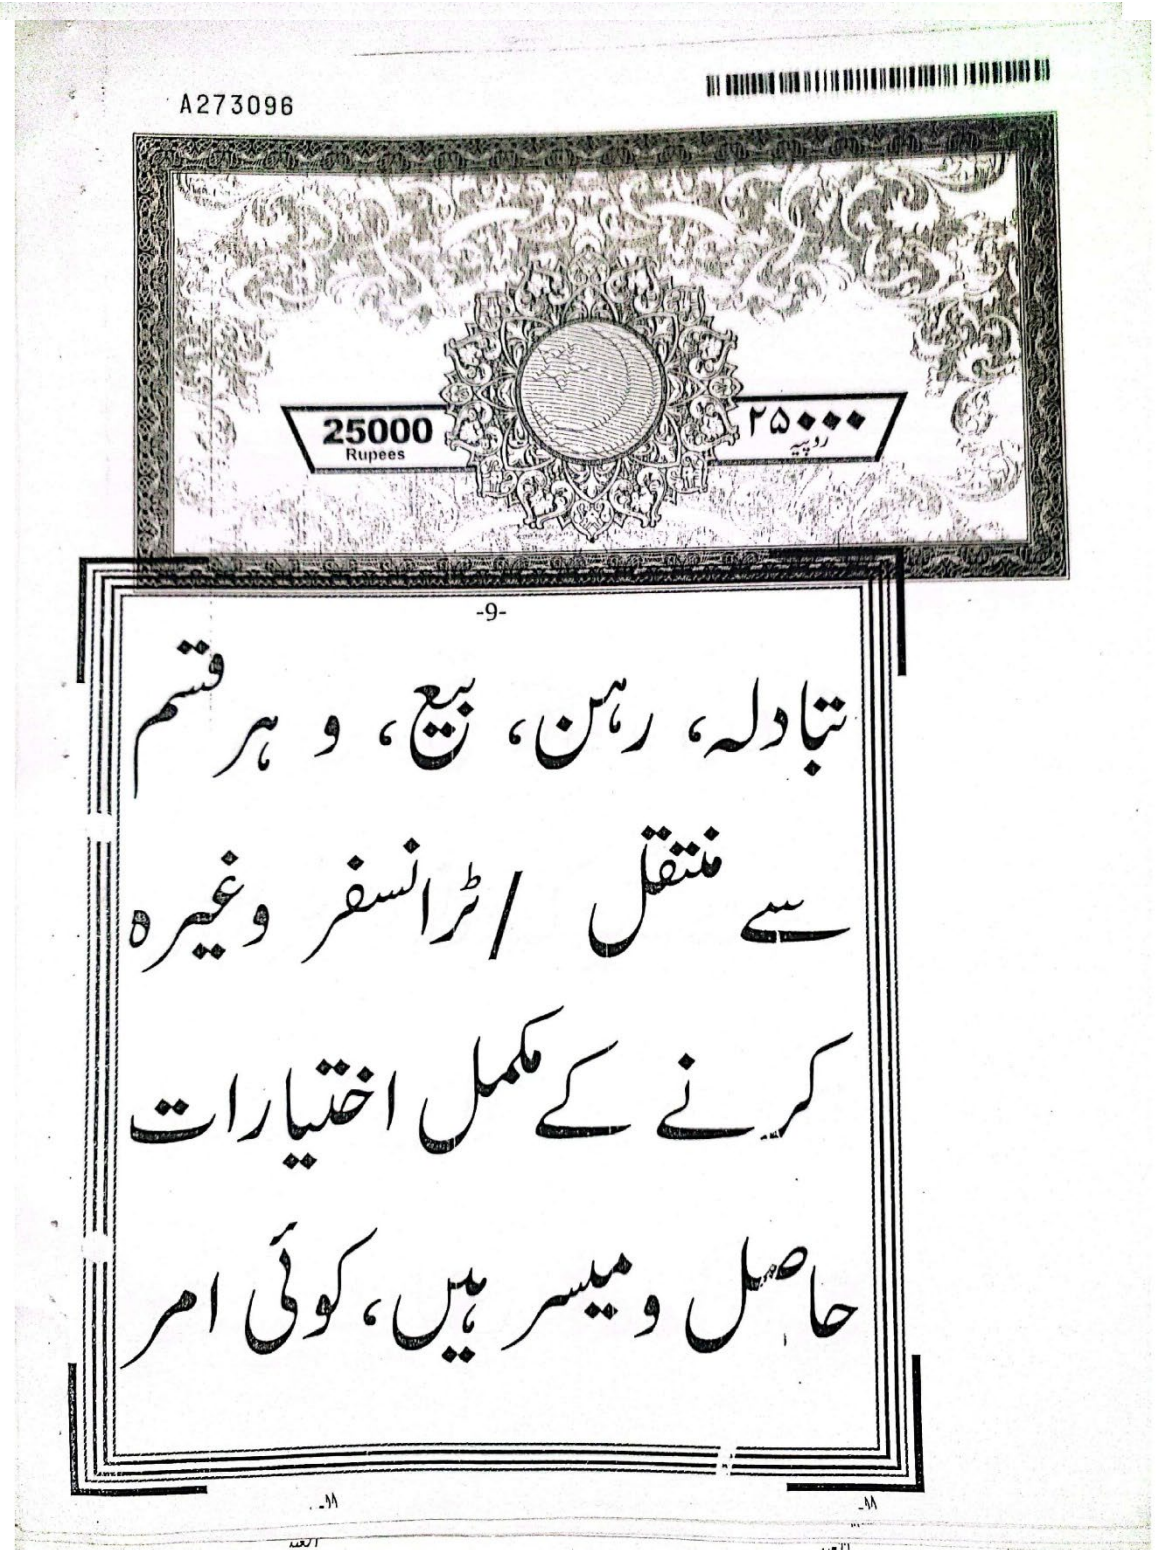 A273096
25000
Rupees
۲۵۰۰۰
روپیہ
-9-
تبادلہ، رہن، بیع، و ہر قسم
سے منتقل / ٹرانسفر وغیرہ
کرنے کے مکمل اختیارات
حاصل و میسر ہیں، کوئی امر